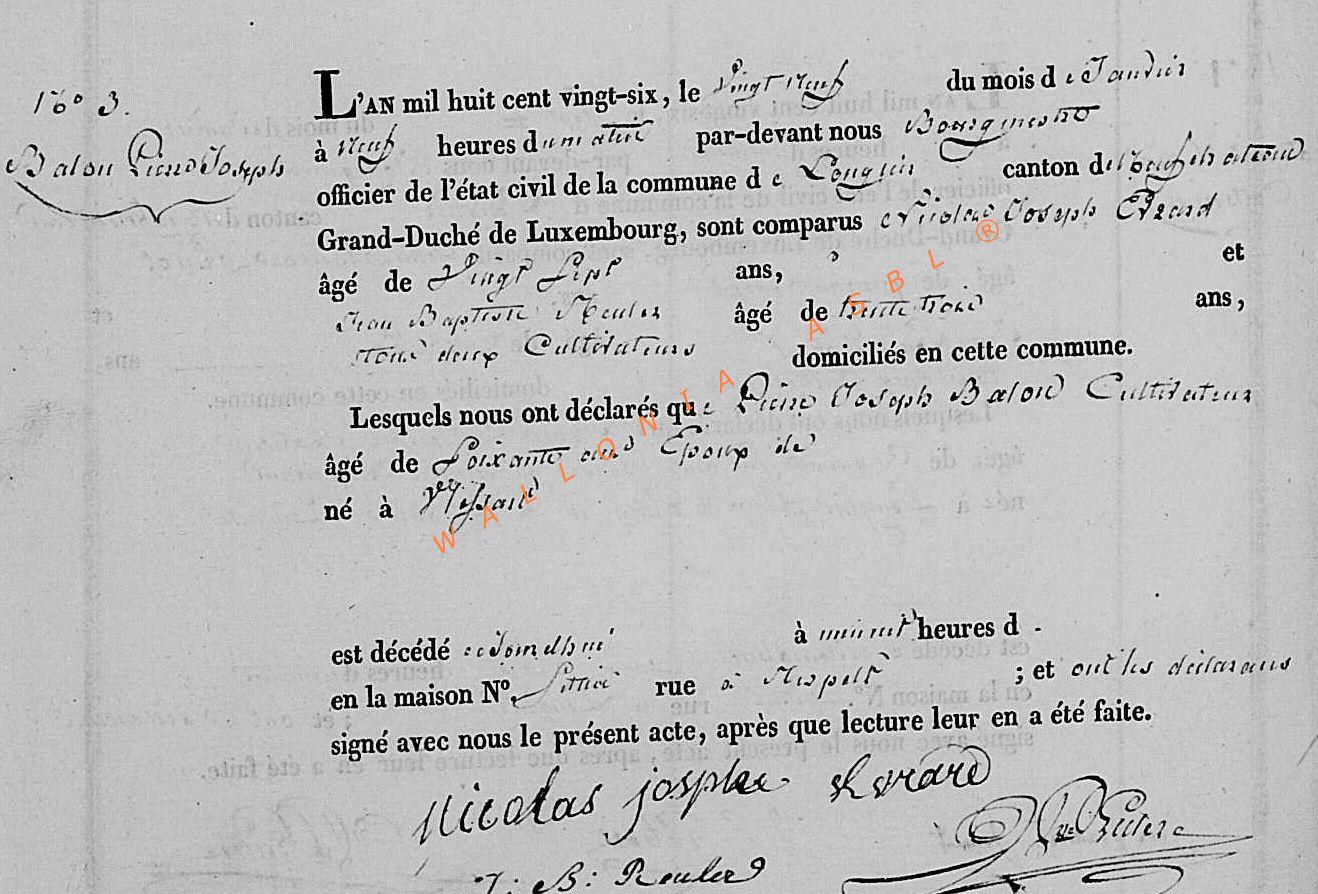 No 3.
Balon Pierre Joseph
L'AN mil huit cent vingt-six, le Vingt Neuf du mois de Janvier
à Neuf heures du matin par-devant nous Bourgmestre
officier de l'état civil de la commune de Longlier canton de Neufchateau
Grand-Duché de Luxembourg, sont comparus Nicolas Joseph Evrard
âgé de Vingt Sept ans, et
Jean Baptiste Reuler âgé de trente trois ans,
tous deux Cultivateurs domiciliés en cette commune.
Lesquels nous ont déclarés que Pierre Joseph Balon Cultivateur
âgé de Soixante ans Epoux de
né à
est décédé aujourdhui à minuit heures d
en la maison No. Située rue à Respelt ; et ont les déclarans
signé avec nous le présent acte, après que lecture leur en a été faite.
Nicolas josphe Evrard
J: B: Reuler
WALLONIA ASBL ®